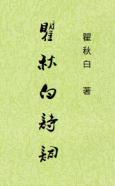 瞿秋白詩詞
瞿秋白 著